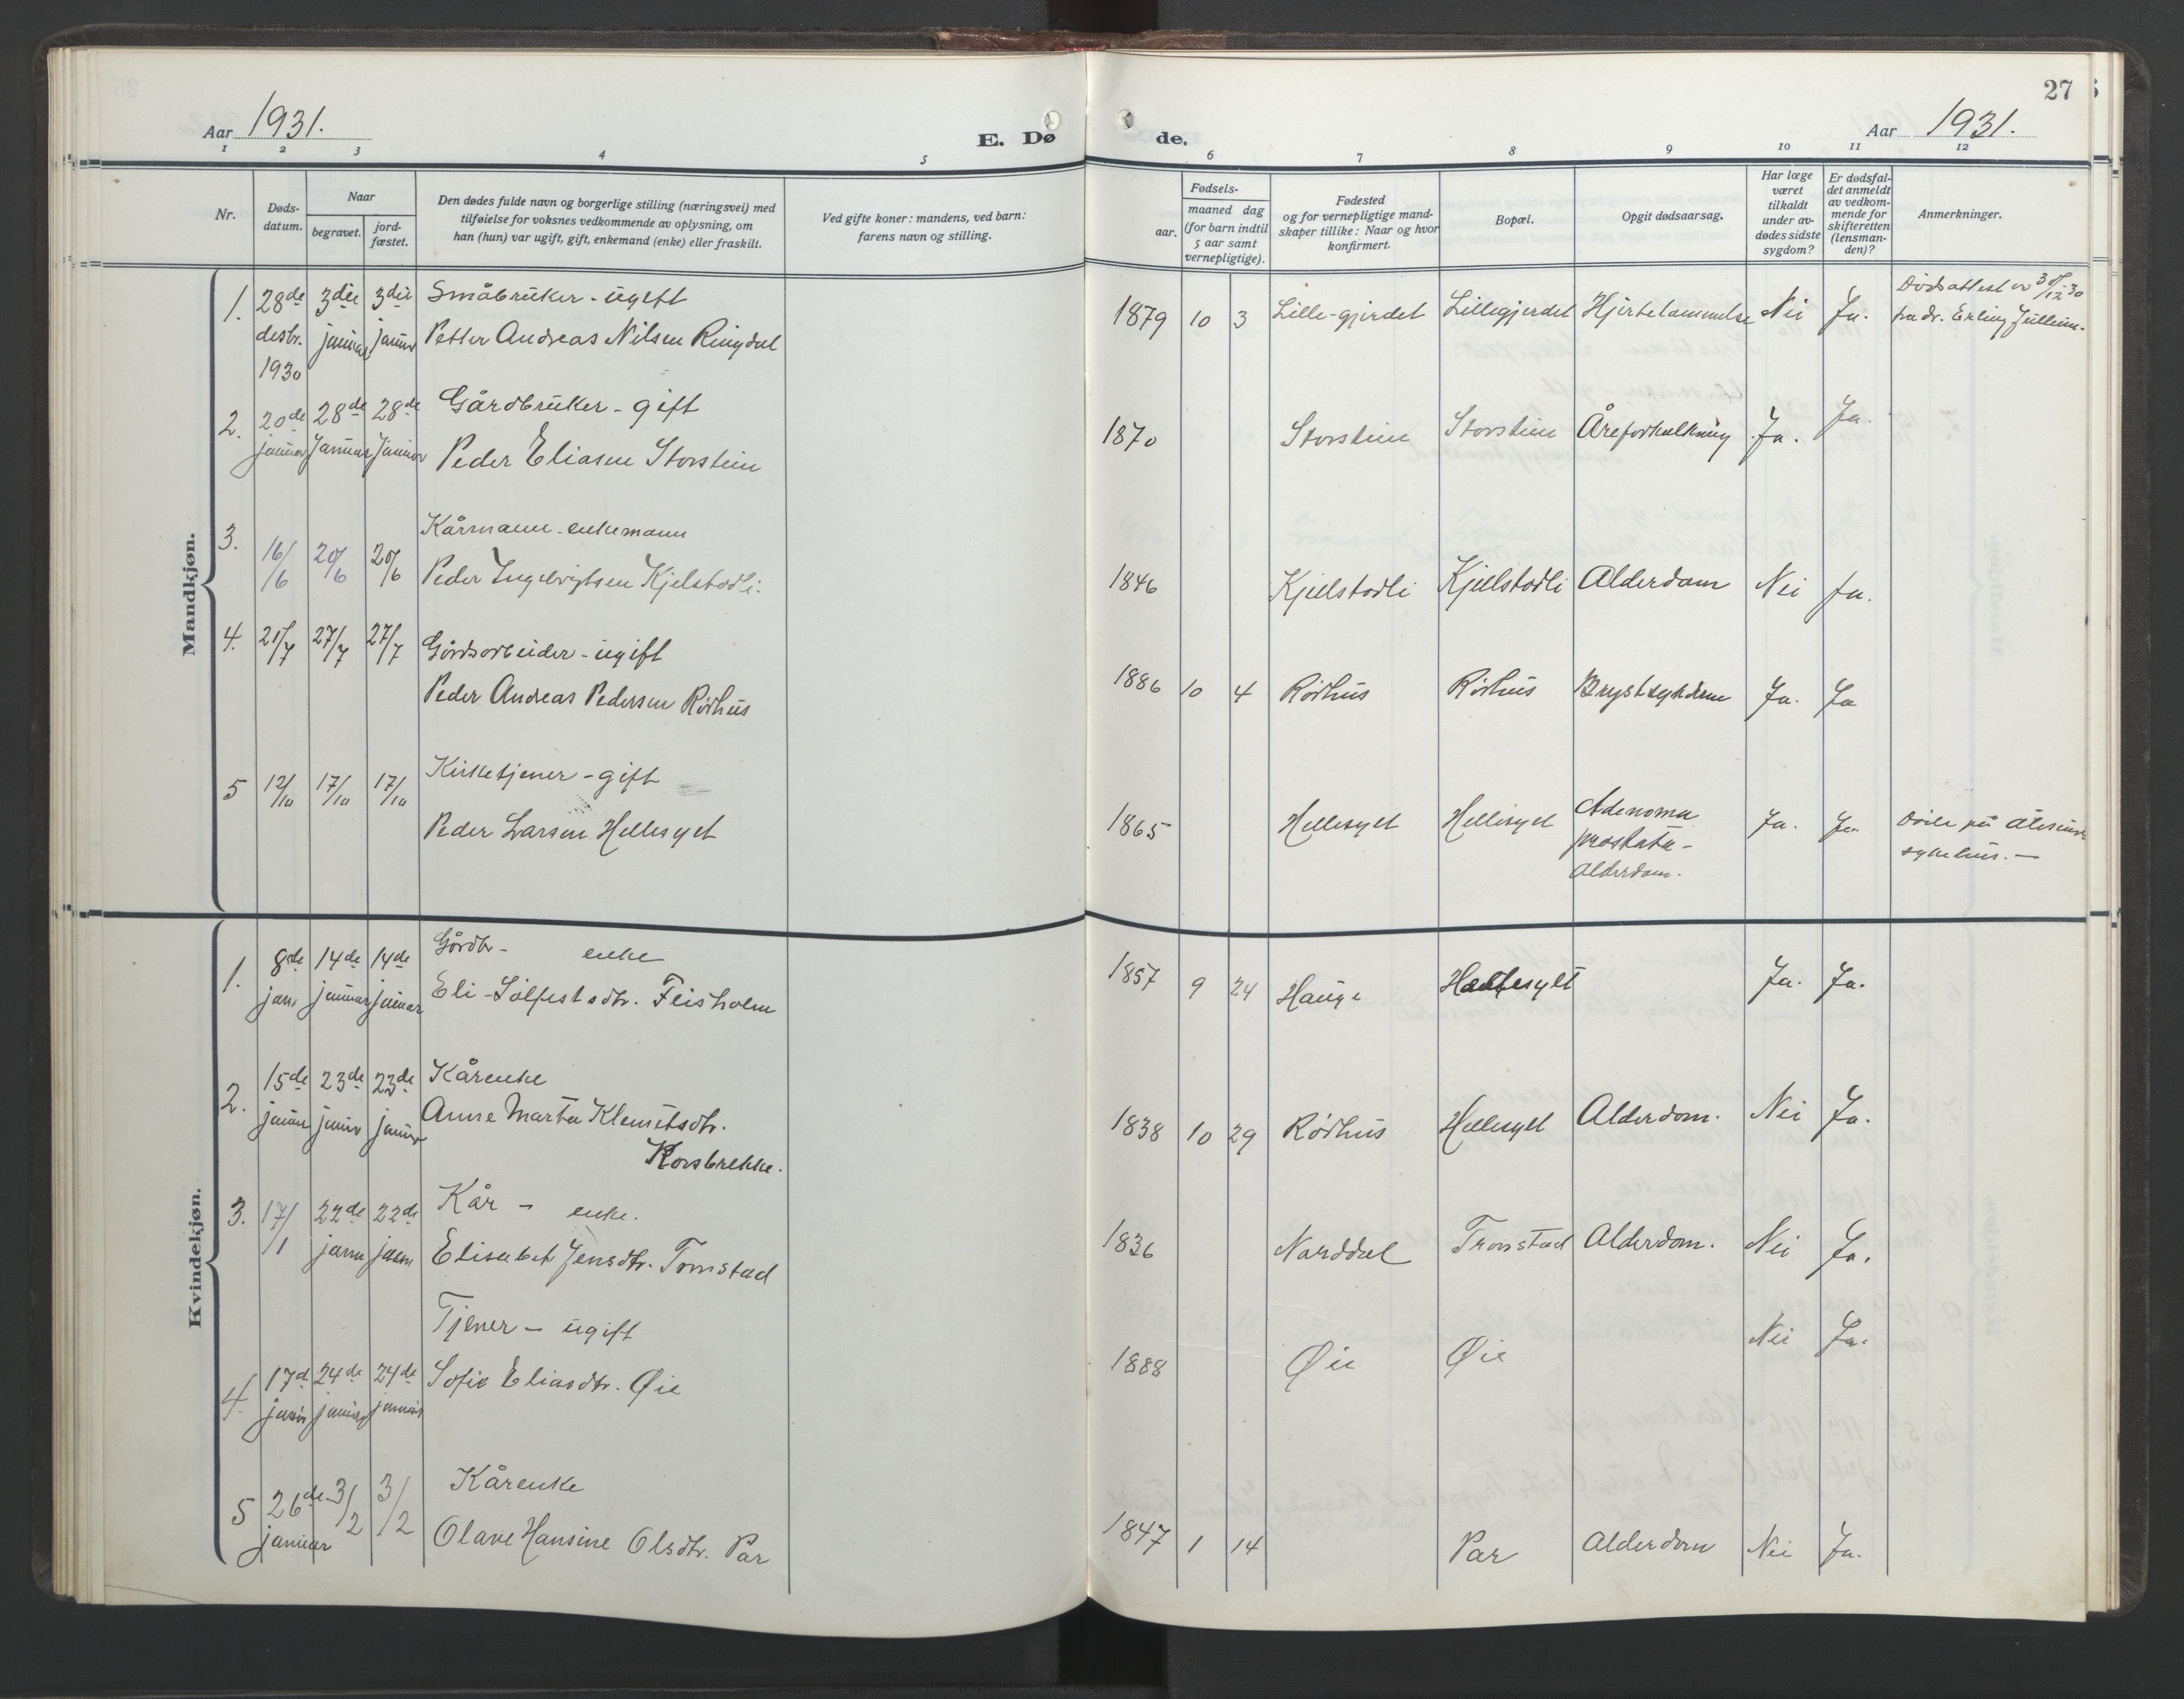 Aar 1931.
E. Døde.
27
Aar 1931.
1 2 3 4 5 6 7 8 9 10 11 12
Nr.
Døds-
datum.
Naar
begravet.
jord-
fæstet.
Den dødes fulde navn og borgerlige stilling (næringsvei) med
tilføielse for voksnes vedkommende av oplysning, om
han (hun) var ugift, gift, enkemand (enke) eller fraskilt.
Ved gifte koner: mandens, ved barn:
farens navn og stilling.
Fødsels-
aar.
maaned dag
(for barn indtil
5 aar samt
vernepligtige).
Fødested
og for vernepligtige mand-
skaper tillike: Naar og hvor
konfirmert.
Bopæl.
Opgit dødsaarsag.
Har læge
været
tilkaldt
under av-
dødes sidste
sygdom?
Er dødsfal-
det anmeldt
av vedkom-
mende for
skifteretten
(lensman-
den)?
Anmerkninger.
Mandkjøn.
1. 28de desbr. 1930 3die januar 3die januar Småbruker - ugift
Petter Andreas Nilsen Ringdal
1879 10 3 Lille-gjerdet Lillegjerdet Hjertelammelse Nei Ja. Dødsattest av 30/12-30
fra dr. Erling
2. 20de januar 28de januar 28de januar Gårdbruker - gift
Peder Eliasen Storstein
1870 Storstein Storstein Åreforkalkning Ja. Ja.
3. 16/6 20/6 20/6 Kårmann - enkemann
Peder Ingebrigtsen Kjelstadli.
1846 Kjelstadli Kjellstadli Alderdom Nei Ja.
4. 21/7 27/7 27/7 Gårdsarbeider - ugift
Peder Andreas Pedersen Rødhus
1886 10 4 Rødhus Rødhus Brystsykdom Ja. Ja
5 12/10 17/10 17/10 Kirketjener - gift
Peder Larsen Hellesylt
1865 Hellesylt Hellesylt Adenoma
prostata -
Alderdom. Ja. Ja. Døde på Ålesunds
sykehus. —
Kvindekjøn.
1. 8de jan. 14de januar 14de januar Gårdbr- enke
Eli Sølfestsdtr. Fleisholm
1857 9 24 Hauge Hellesylt Ja. Ja.
2. 15de januar 23de januar 23de januar Kårenke
Anne Marta Klemetsdtr.
Korsbrekke.
1838 10 29 Rødhus Hellesylt Alderdom. Nei Ja.
3. 17/1 22de januar 22de januar Kår - enke.
Elisabet Jensdtr. Tronstad
1836 Norddal Tronstad Alderdom. Nei Ja.
4. 17de januar 24de januar 24de januar Tjener - ugift
Sofie Eliasdtr. Øie
1888 Øie Øie Nei Ja.
5 26de januar 3/2 3/2 Kårenke
Olave Hansine Olsdtr. Par
1847 1 14 Par Alderdom Nei Ja.